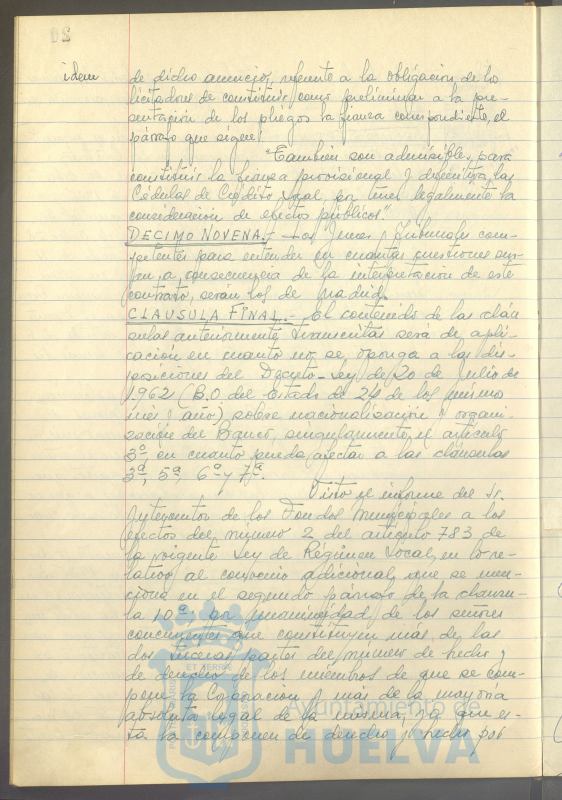 idem
de dicho anuncio, referente a la obligación de los
licitadores de constituir, como preliminar a la pre-
sentación de los pliegos la fianza correspondiente, el
párrafo que sigue:
"También son admisibles, para
constituir la fianza provisional y definitiva, las
Cédulas de Crédito Local, por tener legalmente la
consideración de efectos públicos."
DECIMO NOVENA.- Los Jueces y Tribunales com-
petentes para entender en cuantas cuestiones sur-
jan a consecuencia de la interpretación de este
contrato, serán los de Madrid.
CLAUSULA FINAL.- El contenido de las cláu
sulas anteriormente transcritas será de apli-
cación en cuanto no se oponga a las dis-
posiciones del Decreto-Ley de 20 de Julio de
1962 (B.O. del Estado de 24 de los mismos
mes y año), sobre nacionalización y organi
zación del Banco, singularmente el artículo
3º, en cuanto pueda afectar a las cláusulas
3ª, 5ª, 6ª y 7ª.
Visto el informe del Sr.
Interventor de los Fondos Municipales a los
efectos del número 2 del artículo 783 de
la vigente Ley de Régimen Local, en lo re-
lativo al convenio adicional, que se men-
ciona en el segundo párrafo de la cláusu-
la 10ª, por unanimidad de los señores
concurrentes que constituyen más de las
dos terceras partes del número de hecho y
de derecho de los miembros de que se com-
pone la Corporación y más de la mayoría
absoluta legal de la misma, ya que es-
ta la componen de derecho y hecho por
Ayuntamiento de
HUELVA